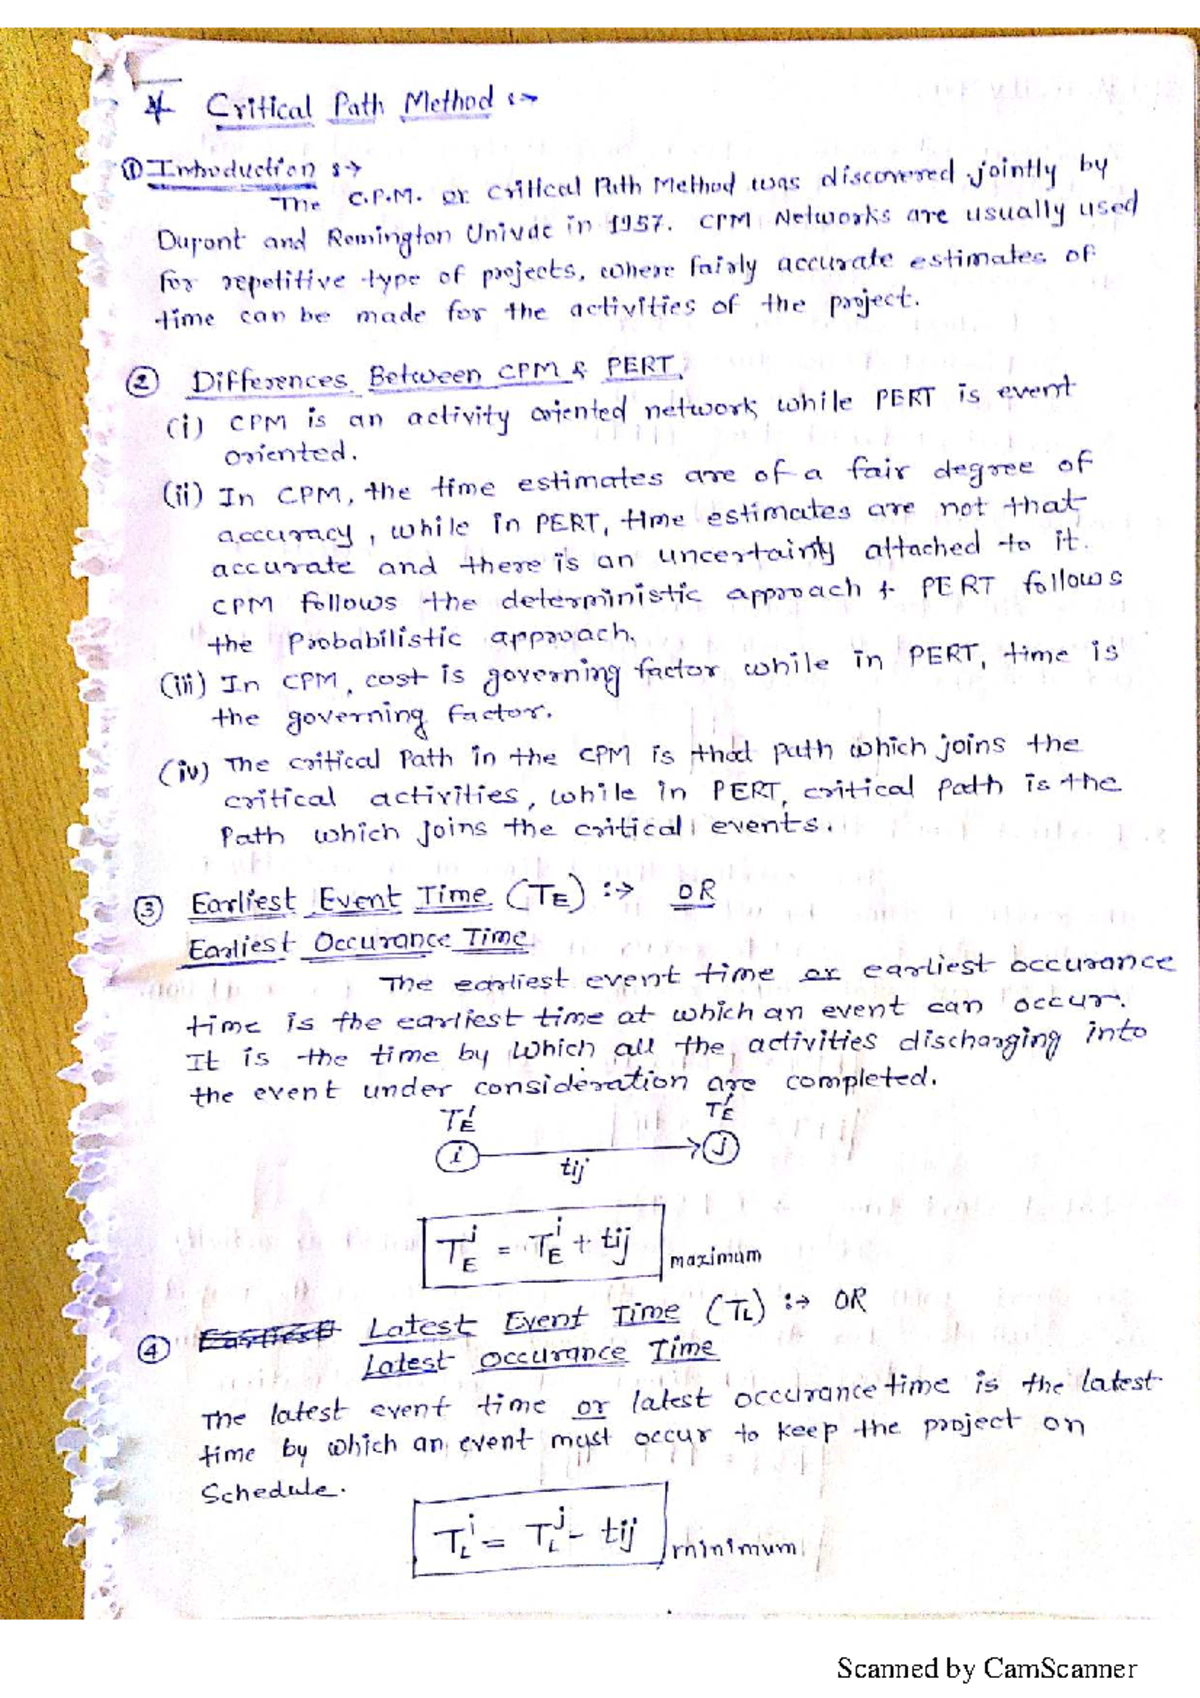 * Critical Path Method :→
① Introduction :→
The C.P.M. or Critical Path Method was discovered jointly by
Dupont and Remington Univac in 1957. CPM Networks are usually used
for repetitive type of projects, where fairly accurate estimates of
time can be made for the activities of the project.
② Differences Between CPM & PERT.
(i) CPM is an activity oriented network while PERT is event
oriented.
(ii) In CPM, the time estimates are of a fair degree of
accuracy, while in PERT, time estimates are not that
accurate and there is an uncertainty attached to it.
CPM follows the deterministic approach & PERT follows
the Probabilistic approach.
(iii) In CPM, cost is governing factor while in PERT, time is
the governing factor.
(iv) The critical Path in the CPM is that path which joins the
critical activities, while in PERT, critical path is the
Path which joins the critical events.
③ Earliest Event Time (TE) :→ OR
Earliest Occurance Time
The earliest event time or earliest occurance
time is the earliest time at which an event can occur.
It is the time by which all the activities discharging into
the event under consideration are completed.
TE' TE'
i tij j
TE^j = TE^i + tij maximum
④ Latest Event Time (TL) :→ OR
Latest Occurance Time
The latest event time or latest occurance time is the latest
time by which an event must occur to keep the project on
Schedule.
TL^i = TL^j - tij minimum
Scanned by CamScanner